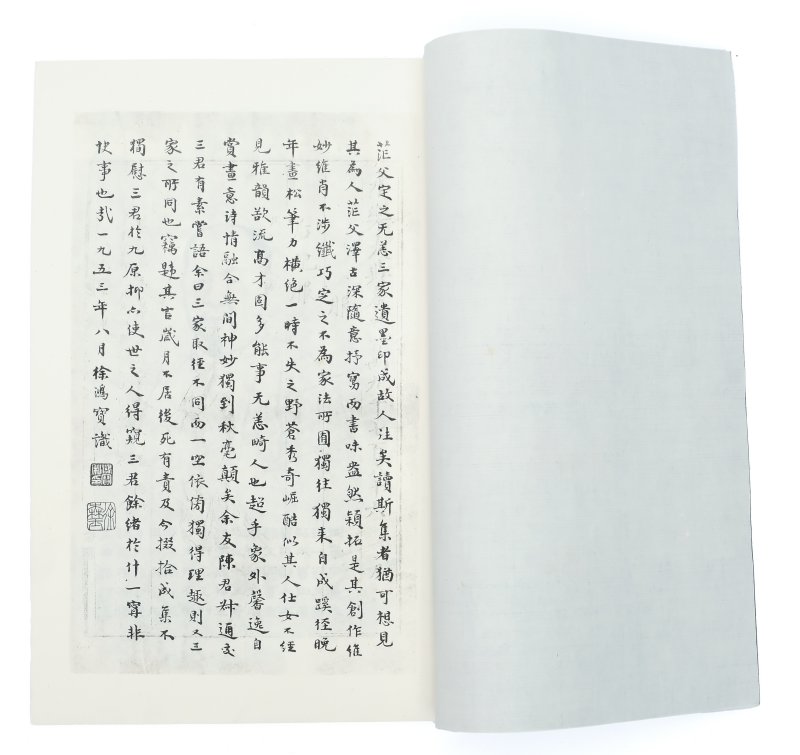 茫父定之无恙三家遺墨印成故人往矣讀斯集者猶可想見
其為人茫父澤古深隨意抒寫而書味盎然穎拓是其創作維
妙維肖不涉纖巧定之不為家法所囿獨往獨來自成蹊徑晚
年畫松筆力橫絕一時不失之野蒼秀奇崛酷似其人仕女不經
見雅韻欲流高才固多能事无恙畸人也超乎象外馨逸自
賞畫意詩情融合無間神妙獨到秋毫顛矣余友陳君叔通交
三君有素嘗語余曰三家取徑不同而一空依傍獨得理趣則又三
家之所同也竊韙其言歲月不居後死有責及今掇拾成集不
獨慰三君於九原抑亦使世之人得窺三君餘緒於什一甯非
快事也哉一九五三年八月徐鴻寶識